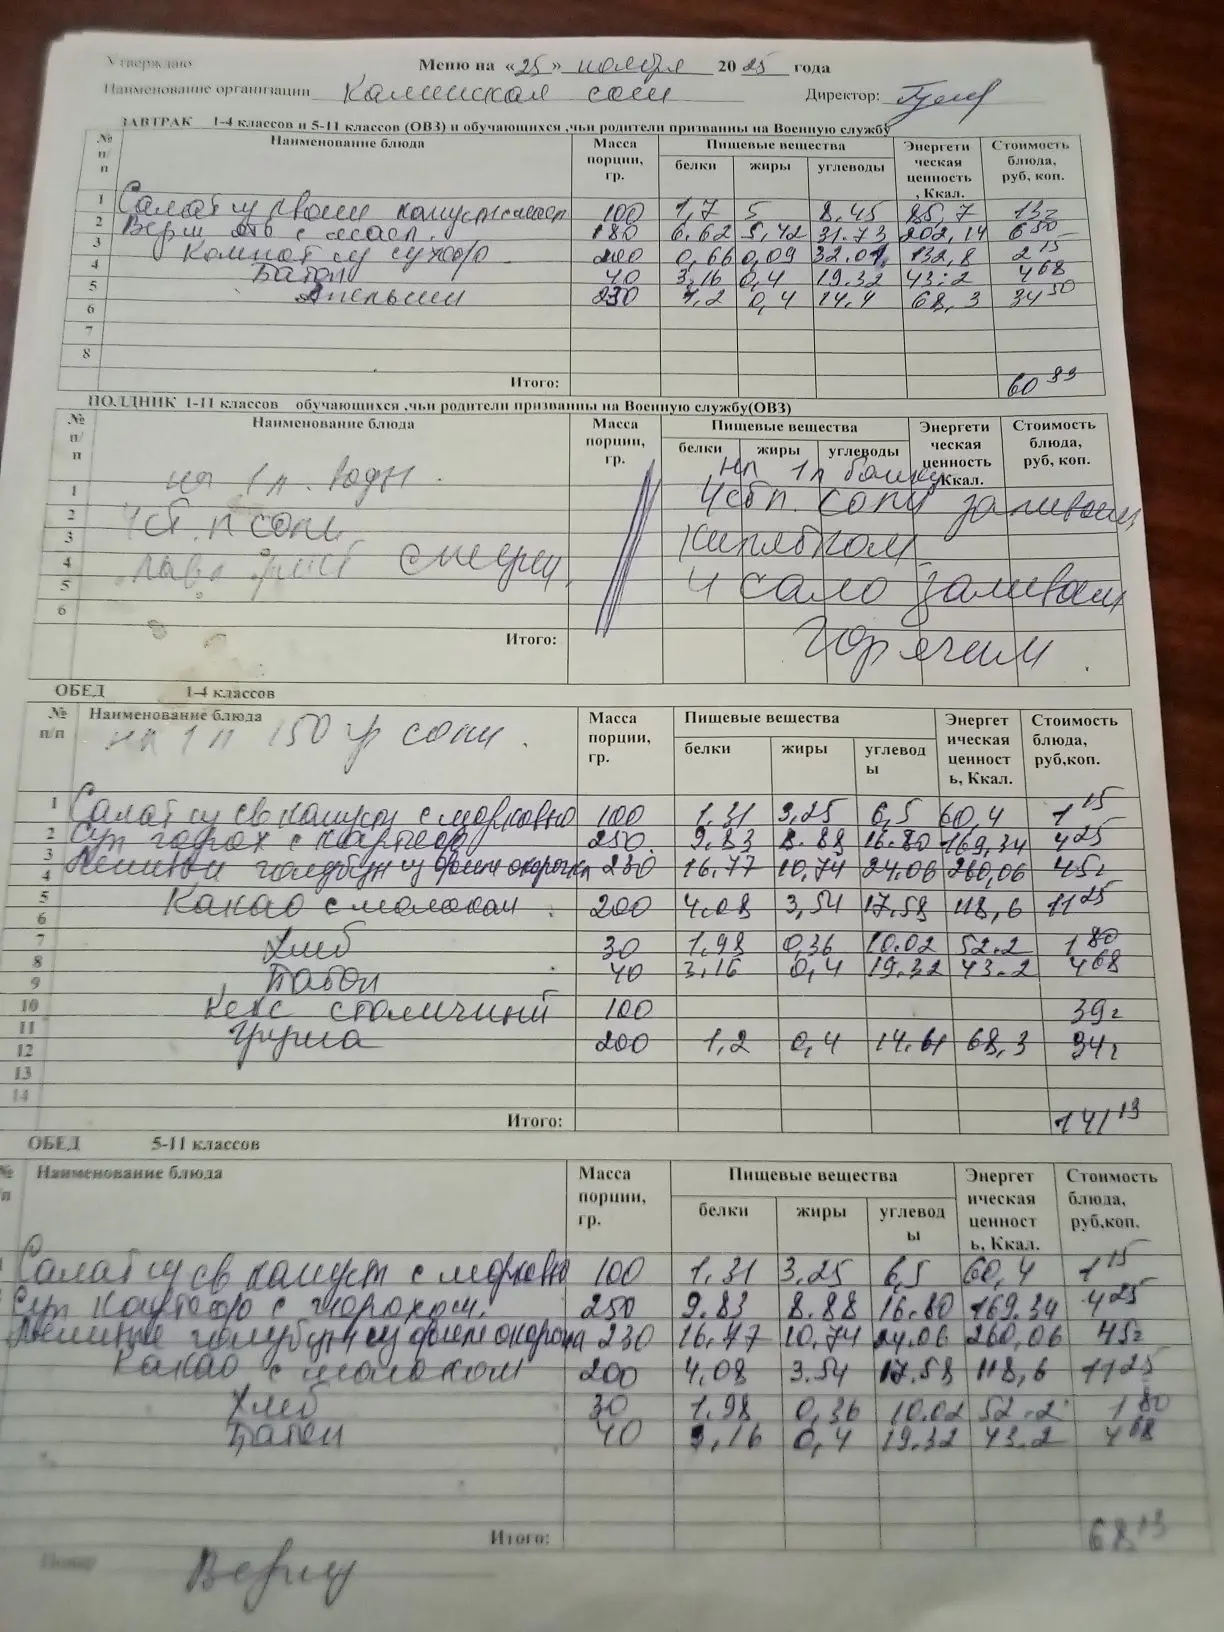 Утверждаю
Меню на «25» ноября 2025 года
Наименование организации Каминская сош Директор:
ЗАВТРАК 1-4 классов и 5-11 классов (ОВЗ) и обучающихся ,чьи родители призванны на Военную службу
№ п/п Наименование блюда Масса порции, гр. Пищевые вещества Энергетическая ценность, Ккал. Стоимость блюда, руб, коп.
белки жиры углеводы
1 Салат из свеж капусты 100 1,7 5 8,45 85,7 13г
2 Верм отв с масл. 180 6.62 5,42 31.73 202,14 6 50
3 Компот из сухоф 200 0,66 0,09 32.01 132,8 2 15
4 Батон 40 3,16 0,4 19.32 43.2 4 68
5 Апельсин 230 1,2 0,4 14,4 68,3 34 50
6
7
8
Итого: 60 83
ПОЛДНИК 1-11 классов обучающихся ,чьи родители призванны на Военную службу(ОВЗ)
№ п/п Наименование блюда Масса порции, гр. Пищевые вещества Энергетическая ценность, Ккал. Стоимость блюда, руб, коп.
белки жиры углеводы
на 1 л. воды. на 1 л банку
1 4 ст. л соли 4 ст л. соли заливаем
2
3 кипятком
4 и сало заливаем
5
6
Итого: горячим.
ОБЕД 1-4 классов
№ п/п Наименование блюда Масса порции, гр. Пищевые вещества Энергетическая ценность, Ккал. Стоимость блюда, руб,коп.
белки жиры углеводы
на 1 л 150 гр соли.
1 Салат из св капусты с морковью 100 1,31 3,25 6,5 60,4 1 15
2 Суп горох с картоф 250 9.83 8.88 16.80 169,34 4 25
3 Ленивые голубцы из филе окорочка 230 16,77 10,74 24.06 260,06 45г
4
5 Какао с молоком 200 4.08 3,54 17.58 118,6 11 25
6
7 Хлеб 30 1,98 0,36 10.02 52.2 1 80
8 Батон 40 3.16 0,4 19.32 43.2 4 68
9
10 Кекс столичный 100 39г
11 Груша 200 1,2 0,4 14.61 68,3 34г
12
13
14
Итого: 141 13
ОБЕД 5-11 классов
№ п/п Наименование блюда Масса порции, гр. Пищевые вещества Энергетическая ценность, Ккал. Стоимость блюда, руб,коп.
белки жиры углеводы
Салат из св капуст с морковью 100 1,31 3,25 6,5 60,4 1 15
Суп картоф с горохом. 250 9.83 8.88 16.80 169.34 4 25
Ленивые голубцы из филе окорочка 230 16,77 10,74 24.06 260,06 45г
Какао с молоком 200 4,08 3.54 17.58 118,6 11 25
Хлеб 30 1.98 0,36 10.02 52.2 1 80
Батон 40 3,16 0,4 19.32 43.2 4 68
Итого: 68 13
Повар